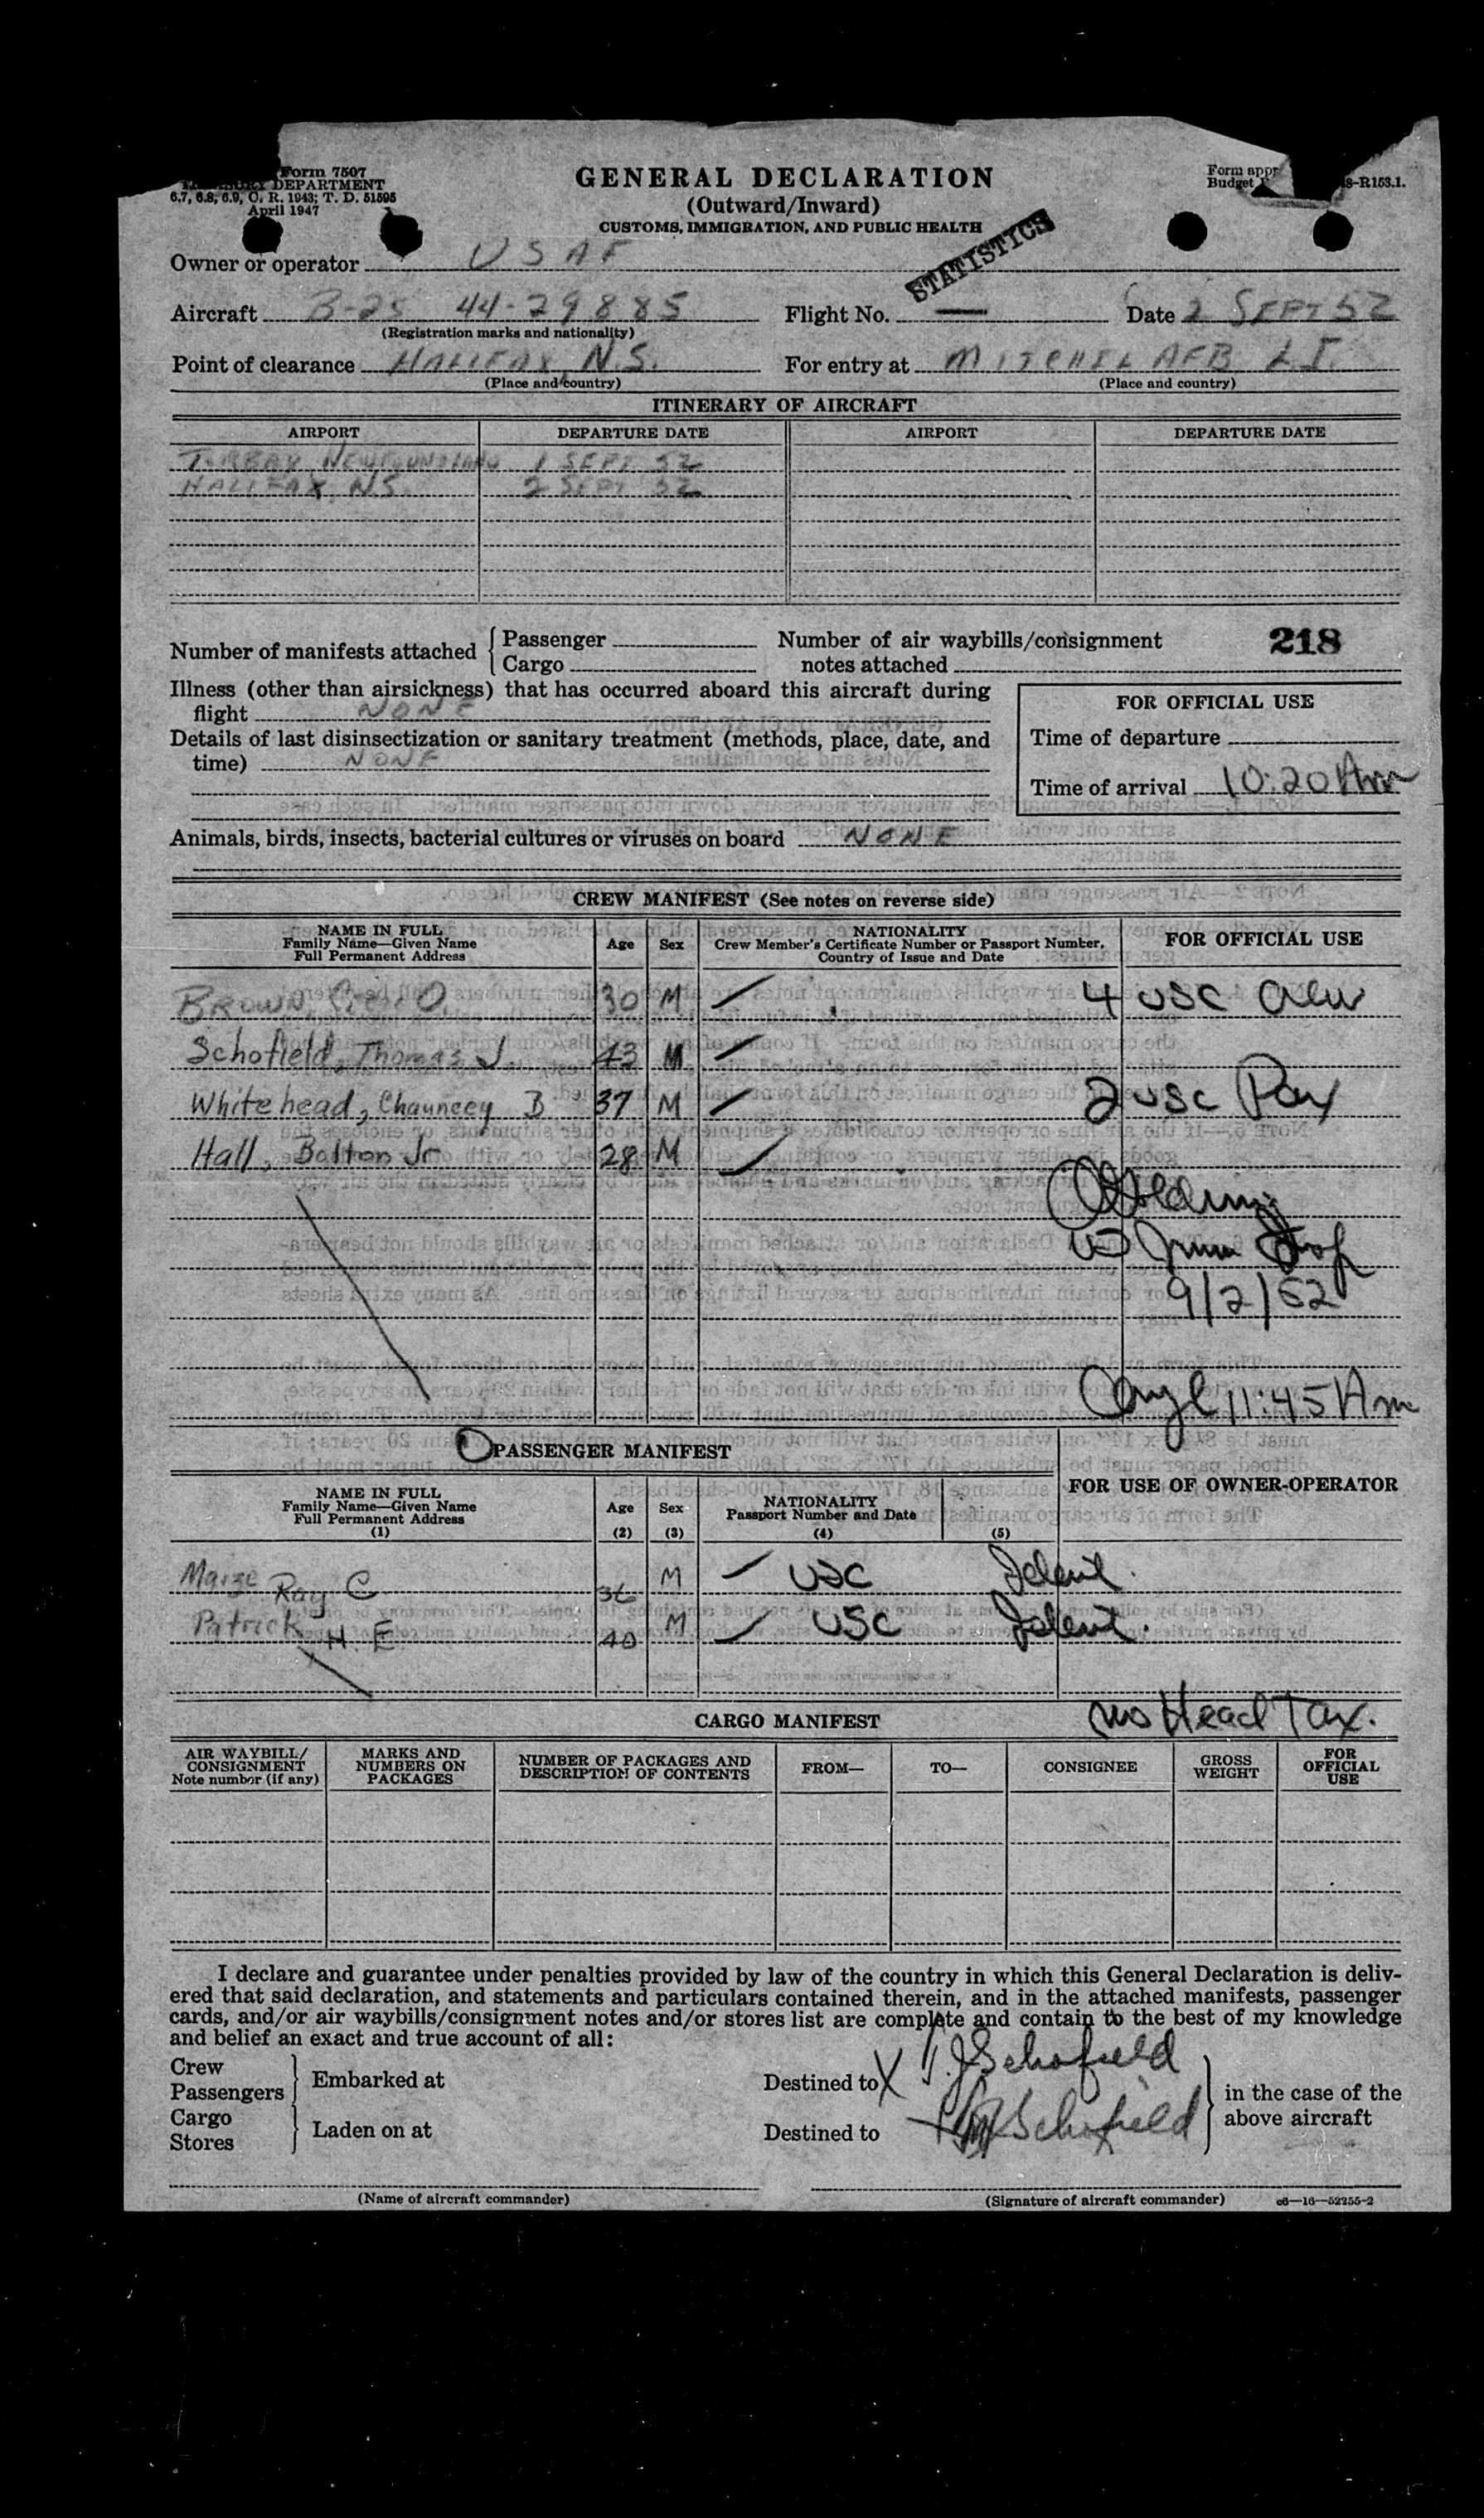 Form 7507
TREASURY DEPARTMENT
6.7, 6.8, 6.9, C. R. 1943; T. D. 51595
April 1947
GENERAL DECLARATION
(Outward/Inward)
CUSTOMS, IMMIGRATION, AND PUBLIC HEALTH
Form appr
Budget
8-R153.1.
STATISTICS
Owner or operator USAF
Aircraft B-25 44-29885 Flight No. — Date 2 SEPT 52
(Registration marks and nationality)
Point of clearance HALIFAX, N.S. For entry at MITCHEL AFB L.I.
(Place and country) (Place and country)
ITINERARY OF AIRCRAFT
AIRPORT DEPARTURE DATE AIRPORT DEPARTURE DATE
TORBAY, NEWFOUNDLAND 1 SEPT 52
HALIFAX, NS. 2 SEPT 52
Number of manifests attached { Passenger
Cargo
Number of air waybills/consignment
notes attached
218
Illness (other than airsickness) that has occurred aboard this aircraft during
flight NONE
Details of last disinsectization or sanitary treatment (methods, place, date, and
time) NONE
FOR OFFICIAL USE
Time of departure
Time of arrival 10:20 Am
Animals, birds, insects, bacterial cultures or viruses on board NONE
CREW MANIFEST (See notes on reverse side)
NAME IN FULL
Family Name—Given Name
Full Permanent Address
Age
Sex
NATIONALITY
Crew Member's Certificate Number or Passport Number,
Country of Issue and Date
FOR OFFICIAL USE
BROWN, O. 30 M 4 USC Crew
Schofield, Thomas J. 43 M
Whitehead, Chauncey B 37 M 2 USC Pax
Hall, Bolton Jr 28 M
Golding
US Imm Insp
9/2/52
11:45 Am
PASSENGER MANIFEST
FOR USE OF OWNER-OPERATOR
NAME IN FULL
Family Name—Given Name
Full Permanent Address
(1)
Age
(2)
Sex
(3)
NATIONALITY
Passport Number and Date
(4) (5)
Maize Ray C 36 M USC Ident.
Patrick H. E. 40 M USC Ident.
no Head Tax.
CARGO MANIFEST
AIR WAYBILL/
CONSIGNMENT
Note number (if any)
MARKS AND
NUMBERS ON
PACKAGES
NUMBER OF PACKAGES AND
DESCRIPTION OF CONTENTS
FROM—
TO—
CONSIGNEE
GROSS
WEIGHT
FOR
OFFICIAL
USE
I declare and guarantee under penalties provided by law of the country in which this General Declaration is deliv-
ered that said declaration, and statements and particulars contained therein, and in the attached manifests, passenger
cards, and/or air waybills/consignment notes and/or stores list are complete and contain to the best of my knowledge
and belief an exact and true account of all:
Crew
Passengers } Embarked at Destined to X T.J. Schofield
Cargo
Stores } Laden on at Destined to Schofield
in the case of the
above aircraft
(Name of aircraft commander) (Signature of aircraft commander) c6—16—52255-2